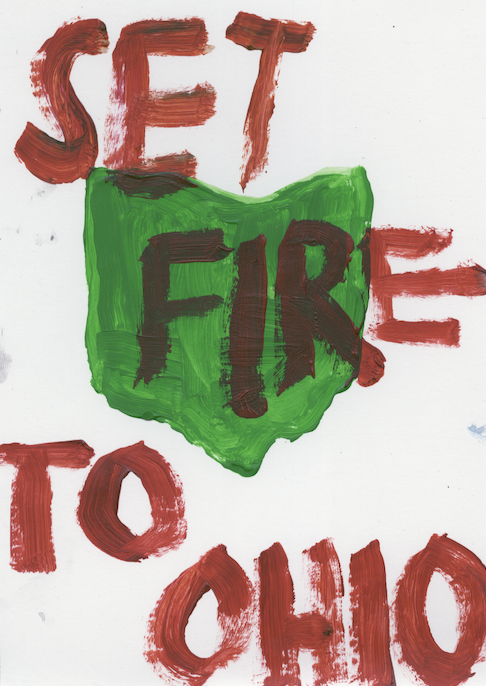 SET
FIRE
TO
OHIO